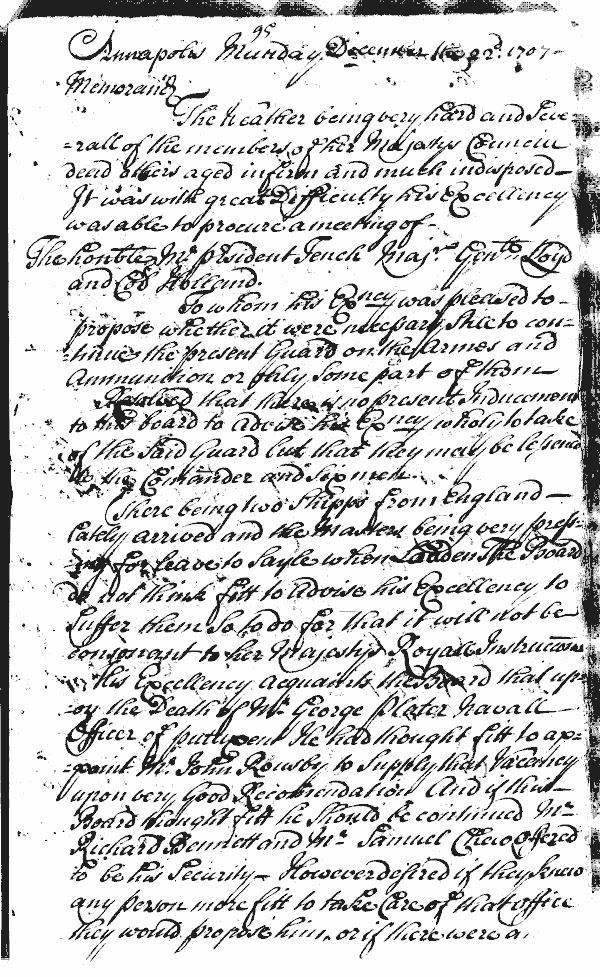 95
Annapolis Munday December the 22d. 1707-
Memorand
The Weather being very hard and seve
=rall of the members of her Majestys Councill
deed others aged infirm and much indisposed-
It was with great Difficulty his Excellency
was able to procure a meeting of-
The honble Mr. president Tench Majr. Genll Loyd
and Col Holland.
To whom his Exncy was pleased to-
propose whether it were necessary still to con-
=tinue the present Guard on the Armes and
Ammunition or only some part of them
Resolved that there is no present Inducement
to this board to advise his Exncy wholy to take
off the said Guard but that they may be lessened
to the Comander and six men.
There being two Shipps from England-
lately arrived and the Masters being very press-
=ing for leave to sayle when Ladden The Board
do not think fitt to advise his Excellency to
suffer them so to do for that it will not be
consonant to her Majestys Royall Instruccons
His Excellency acquaints the Board that upn
=on the Death of Mr. George plater Navall
Officer of puttuxent He had thought fitt to ap=
=point Mr. John Rousby to supply that Vacancy
upon very Good Recomendation And if this-
Board thought fitt he should be continued Mr.
Richard Bennett and Mr. Samuel Chew offered
to be his Security- However desired if they knew
any person more fitt to take Care of that office
they would propose him. or if there were a